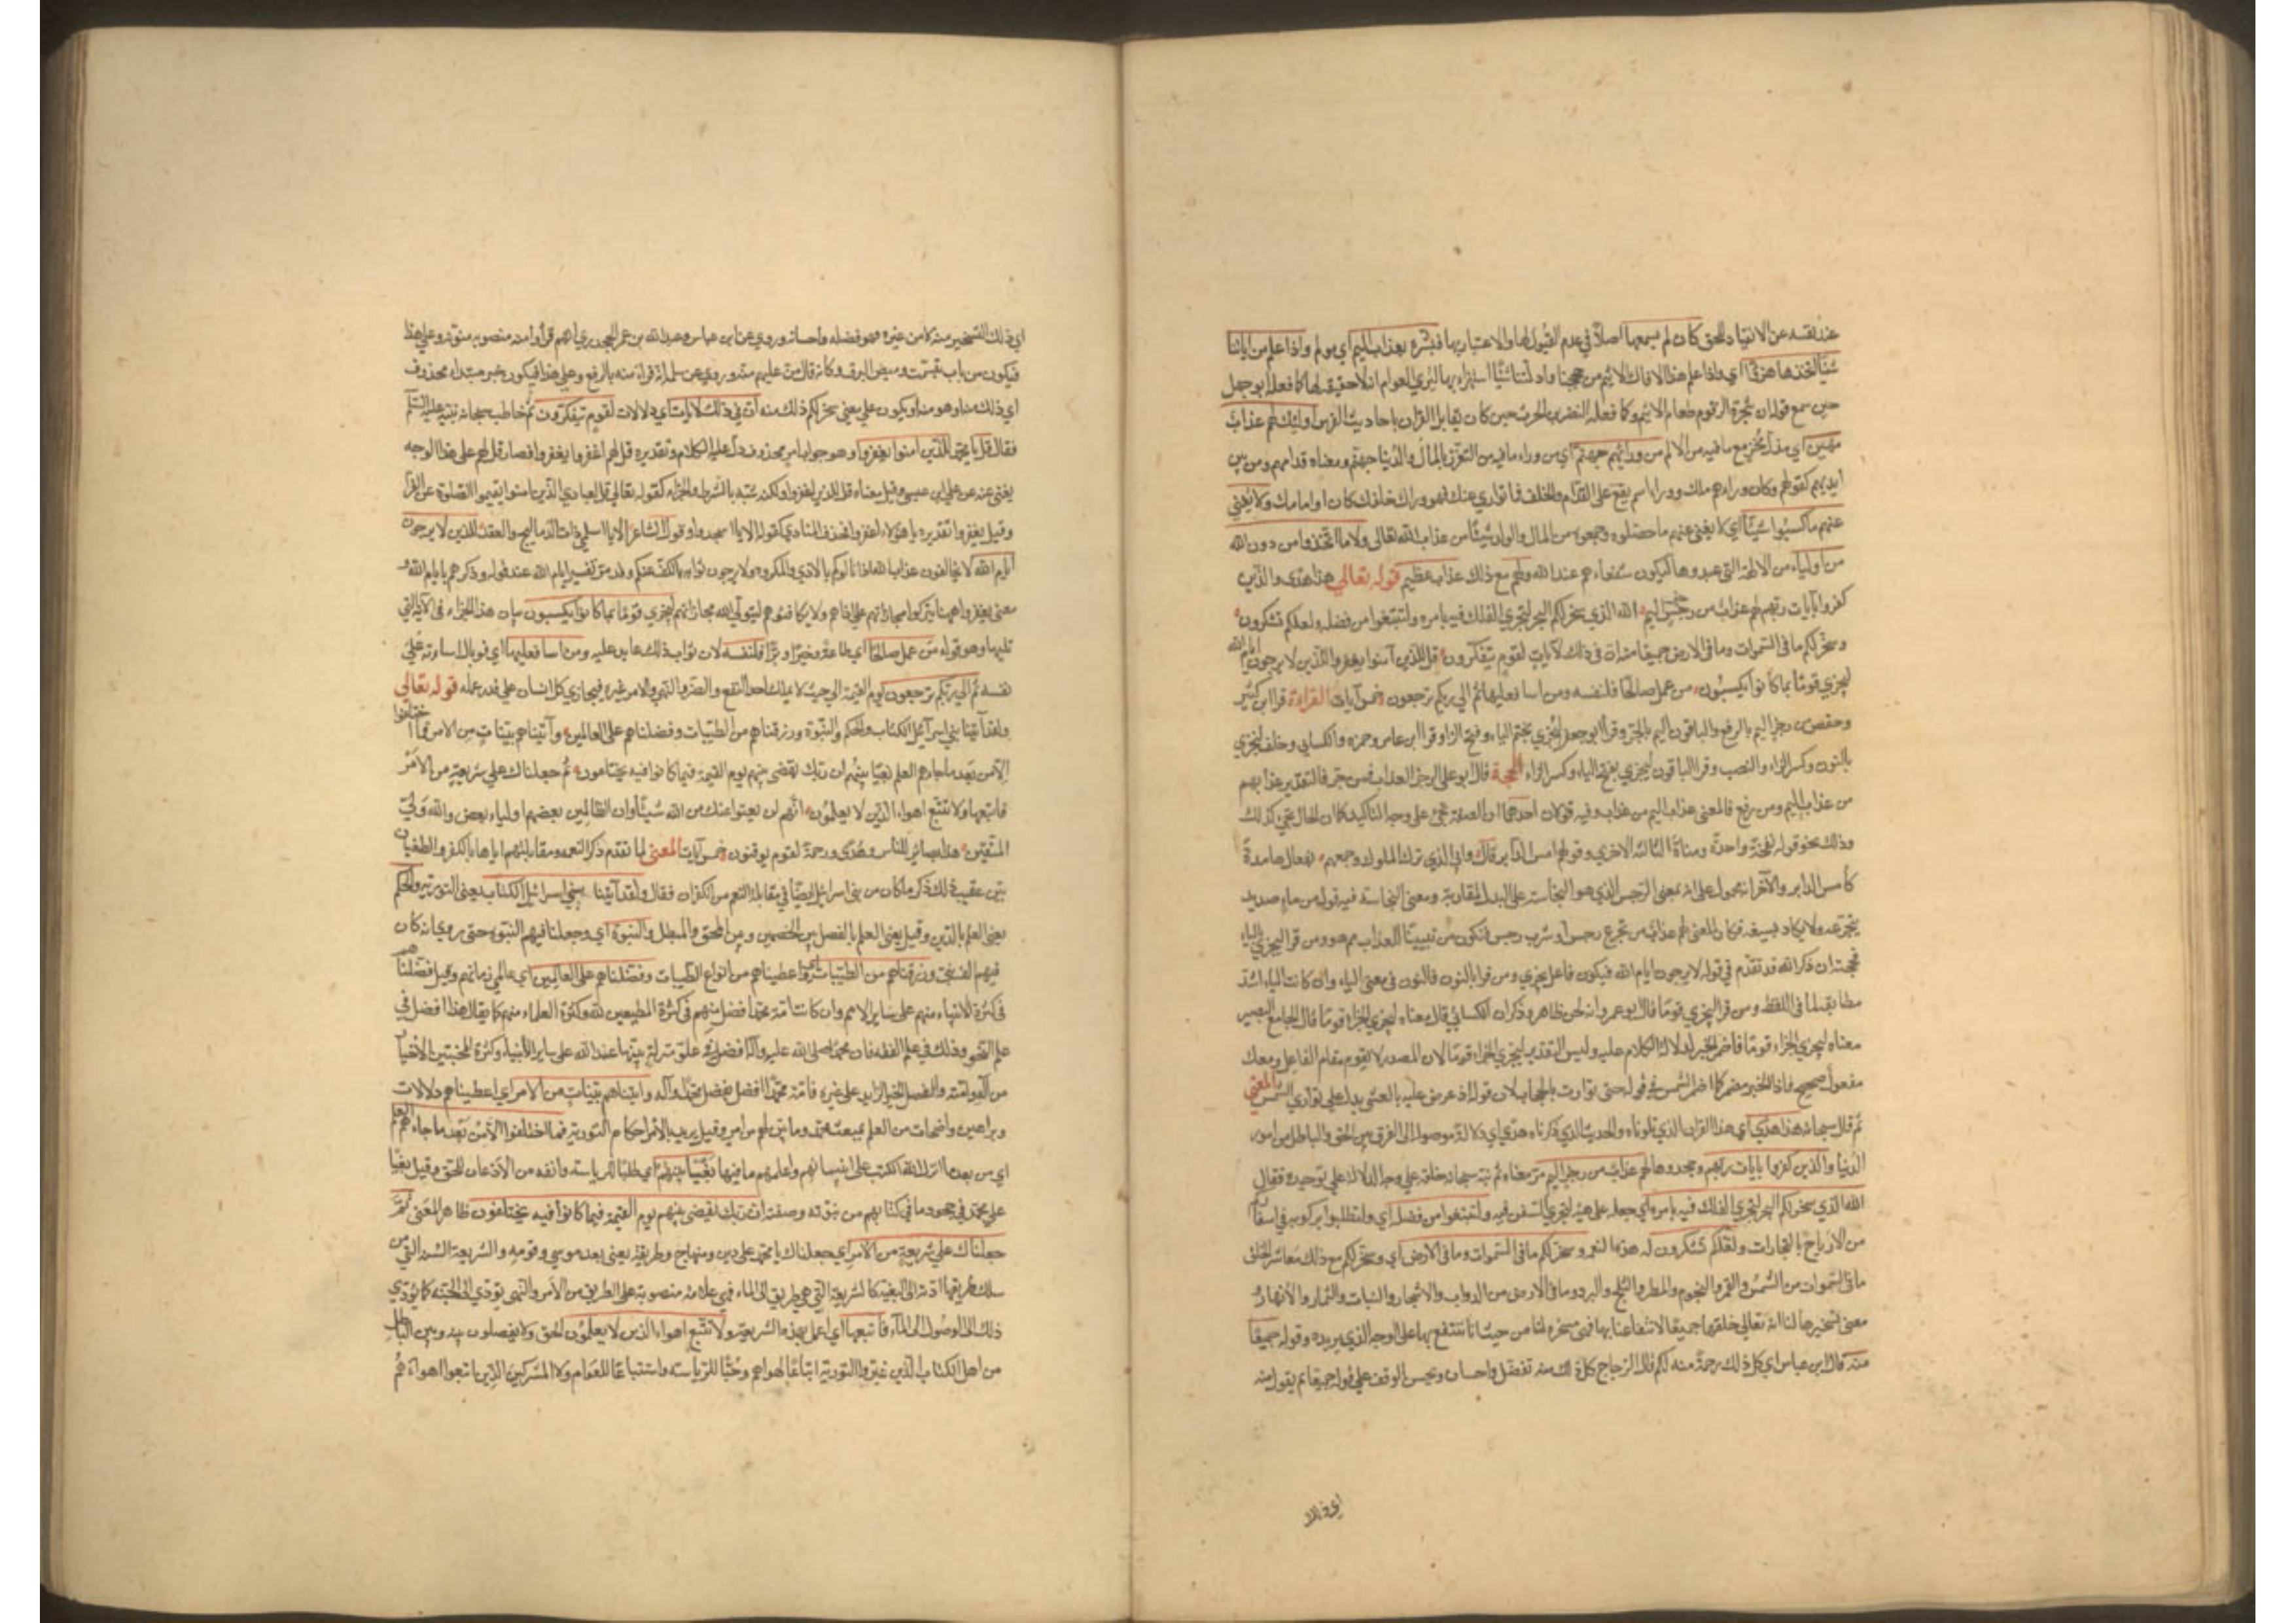 عند نفسه عن الانقياد للحق كان لم يسمعها اصلاً في عدم القبول لها والاعتبار بها فبشره بعذاب اليم اي مولم واذا علم من اياتنا
شيئًا اتخذها هزؤًا اي واذا علم هذا الافاك الاثيم من حججنا وادلتنا شيئًا استهزاء بها ليري العوام انه لا حقيقة لها كما فعله ابو جهل
حين سمع قوله ان شجرة الزقوم طعام الاثيم وكما فعله النضر بن الحرث حين كان يقابل القران باحاديث الفرس اولئك لهم عذاب
مهين اي مذل مخز مع ما فيه من الالم من ورائهم جهنم اي من وراء ما فيه من التعزز بالمال والدنيا جهنم ومعناه قدامهم ومن بين
ايديهم كقوله وكان وراءهم ملك ووراء اسم يقع على القدام والخلف فما توارى عنك فهو وراك خلفك كان او امامك ولا يغني
عنهم ما كسبوا شيئًا اي لا يغني عنهم ما حصلوه وجمعوه من المال والولد شيئًا من عذاب الله تعالى ولا ما اتخذوا من دون الله
من اولياء من الالهة التي عبدوها ليكون شفعاءهم عند الله ولهم مع ذلك عذاب عظيم قوله تعالى هذا هدى والذين
كفروا بآيات ربهم لهم عذاب من رجز اليم الله الذي سخر لكم البحر لتجري الفلك فيه بامره ولتبتغوا من فضله ولعلكم تشكرون
وسخر لكم ما في السموات وما في الارض جميعًا منه ان في ذلك لآيات لقوم يتفكرون قل للذين آمنوا يغفروا للذين لا يرجون ايام الله
ليجزي قومًا بما كانوا يكسبون من عمل صالحًا فلنفسه ومن اسا فعليها ثم الى ربكم ترجعون خمس آيات القراءة قرا ابن كثير
وحفص من رجز اليم بالرفع والباقون اليم بالجر وقرأ ابو جعفر ليجزى بضم الياء وفتح الزا وقرا ابن عامر وحمزه والكسائي وخلف لنجزي
بالنون وكسر الزاء والنصب وقرا الباقون ليجزي بفتح الياء وكسر الزاء الحجة قال ابو علي الرجز العذاب فمن جر فالتقدير عذابهم
من عذاب اليم ومن رفع فالمعنى عذاب اليم من عذاب وفيه قولان احدهما ان الصفة تجئ على وجه التاكيد كما ان الحال تجئ كذلك
وذلك نحو قوله نفخة واحدة ومناة الثالثة الاخرى وقولهم امس الدابر قال وابي الذي ترك الملوك وجمعهم بفعال هامدة
كأمس الدابر والآخر انه محمول على انه بمعنى الرجس الذي هو النجاسة على البدل للمقاربة ومعنى النجاسة فيه قوله من ماء صديد
يتجرعه ولا يكاد يسيغه فكان المعنى لهم عذاب من تجرع رجس او شرب رجس فتكون من تبيينًا للعذاب مم هو ومن قرا ليجزي بالياء
فحجته ان ذكر الله قد تقدم في قوله لا يرجون ايام الله فيكون فاعل يجزي ومن قرا بالنون فالنون في معنى الياء وان كانت الياء اشد
مطابقة لما في اللفظ ومن قرا ليجزي قومًا فقال ابو عمرو انه لحن ظاهر وذكر ان الكسائي قال معناه ليجزي الجزاء قومًا قال الجامع البصير
معناه ليجزي الجزاء قومًا فاضمر الخير لدلالة الكلام عليه وليس التقدير ليجزي الجزاء قومًا لان المصدر لا يقوم مقام الفاعل ومعك
مفعول صحيح فاذا الخير مضمر كما اضمر الشمس في قوله حتى توارت بالحجاب لان قوله اذ عرض عليه بالعشي يدل على تواري الشمس المعنى
ثم قال سبحانه هذا هدى اي هذا القران الذي تلوناه والحديث الذي ذكرناه هدى اي دلالة موصولة الى الفرق بين الحق والباطل من امور
الدنيا والذين كفروا بايات ربهم وجحدوها لهم عذاب من رجز اليم مر معناه ثم نبه سبحانه خلقه على وجه الدلالة على توحيده فقال
الله الذي سخر لكم البحر لتجري الفلك فيه بامره اي جعله على هيئة لتجري السفن فيه ولتبتغوا من فضله اي ولتطلبوا بركوبه في اسفاركم
من الارباح بالتجارات ولعلكم تشكرون له هذه النعم وسخر لكم ما في السموات وما في الارض اي وسخر لكم مع ذلك معاشر الخلق
ما في السموات من الشمس والقمر والنجوم والمطر والثلج والبرد وما في الارض من الدواب والاشجار والنبات والثمار والانهار
معنى تسخيرها لنا انه تعالى خلقها جميعًا لانتفاعنا بها فهي مسخرة لنا من حيث انا ننتفع بها على الوجه الذي يريده وقوله جميعًا
منه قال ابن عباس اي كل ذلك رحمة منه لكم قال الزجاج كل ذلك منه تفضل واحسان ويحسن الوقف على قوله جميعًا ثم يقول منه
اي ذلك
اي ذلك التسخير منه لا من غيره وهو فضله واحسانه وروي عن ابن عباس وعبد الله بن عمر والجحدري انهم قرأوا منة منصوبه منونه وعلى هذا
فيكون من باب تبسمت وميض البرق وكانه قال من عليهم منة وروي عن سلمة انه قراء منه بالرفع وعلى هذا فيكون خبر مبتداء محذوف
اي ذلك منه او هو منه او يكون على معنى سخر لكم ذلك منه ان في ذلك لآيات اي دلالات لقوم يتفكرون ثم خاطب سبحانه نبيه عليه السلم
فقال قل يا محمد للذين امنوا يغفروا وهو جواب امر محذوف دل عليه الكلام وتقديره قل لهم اغفروا يغفروا فصار قل لهم على هذا الوجه
يغني عنه عن علي ابن عيسى وقيل معناه قل للذين يغفروا ولكنه شبه بالشرط والجزاء كقوله تعالى قل لعبادي الذين امنوا يقيموا الصلوة عن الفرا
وقيل يغفروا تقديره يا هؤلاء اغفروا فحذف المنادى كقوله الا يا اسجدوا وقول الشاعر الا يا اسلمي ذات الدماليج والعقد للذين لا يرجون
ايام الله لا يخافون عذاب الله اذا نالوكم بالاذى والمكروه ولا يرجون ثوابه بالكف عنكم وقد مر تفسير ايام الله عند قوله وذكرهم بايام الله و
معنى يغفروا ههنا يتركوا مجازاتهم على اذاهم ولا يكافئوهم ليتولى الله مجازاتهم ليجزي قومًا بما كانوا يكسبون بيان هذا الجزاء في الآية التي
تليها وهو قوله من عمل صالحًا اي طاعة وخيرًا وبرًا فلنفسه لان ثواب ذلك عايد عليه ومن اسا فعليها اي فوبال اساءته على
نفسه ثم الى ربكم ترجعون يوم القيمة الى حيث لا يملك احد النفع والضر والنهي والامر غيره فيجازي كل انسان على قدر عمله قوله تعالى
ولقد آتينا بني اسرآئيل الكتاب والحكم والنبوة ورزقناهم من الطيبات وفضلناهم على العالمين وآتيناهم بينات من الامر فما اختلفوا
الا من بعد ما جاءهم العلم بغيًا بينهم ان ربك يقضي بينهم يوم القيمة فيما كانوا فيه يختلفون ثم جعلناك على شريعة من الامر
فاتبعها ولا تتبع اهواء الذين لا يعلمون انهم لن يغنوا عنك من الله شيئًا وان الظالمين بعضهم اولياء بعض والله ولي
المتقين هذا بصائر للناس وهدى ورحمة لقوم يوقنون خمس آيات المعنى لما تقدم ذكر النعمه ومقابلتهم اياها بالكفر والطغيان
بين عقيب ذلك ذكر ما كان من بني اسرائيل ايضًا في مقابلة النعم من الكفران فقال ولقد آتينا بني اسرائيل الكتاب يعني التورية والحكم
يعني العلم بالدين وقيل يعني العلم بالفصل بين الخصمين وبين المحق والمبطل والنبوة اي وجعلنا فيهم النبوة حتى روي انه كان
فيهم الف نبي ورزقناهم من الطيبات اي اعطيناهم من انواع الطيبات وفضلناهم على العالمين اي عالمي زمانهم وقيل فضلناهم
في كثرة الانبياء منهم على ساير الامم وان كانت امة محمد افضل منهم في كثرة المطيعين لله وكثرة العلماء منهم كما يقال هذا افضل في
علم النحو وذلك في علم الفقه فامة محمد صلى الله عليه وآله افضل في علو منزلة نبيها عند الله على ساير الأنبياء وكثرة المجتبين الأخيار
من آله وامته والفضل الخير الزايد على غيره فامة محمد افضل بفضل محمد وآله وآتيناهم بينات من الامر اي اعطيناهم دلالات
وبراهين واضحات من العلم بمبعث محمد وما بين لهم من امره وقيل يريد بالامر احكام التورية فما اختلفوا الا من بعد ما جاءهم العلم
اي من بعد ما انزل الله الكتب على انبيائهم واعلمهم ما فيها بغيًا بينهم اي طلبًا للرياسة وانفه من الاذعان للحق وقيل بغيًا
على محمد في جحود ما في كتابهم من نبوته وصفته ان ربك يقضي بينهم يوم القيمة فيما كانوا فيه يختلفون ظاهر المعنى ثم
جعلناك على شريعة من الامر اي جعلناك يا محمد على دين ومنهاج وطريقة يعني بعد موسى وقومه والشريعة السنة التي من
سلك طريقها ادته الى البغية كالشريعة التي هي طريق الى الماء فهي علامة منصوبة على الطريق من الأمر والنهي تؤدي الى الجنة كما يؤدي
ذلك الى الوصول الى الماء فاتبعها اي اعمل بهذه الشريعة ولا تتبع اهواء الذين لا يعلمون الحق ولا يفصلون بينه وبين الباطل
من اهل الكتاب الذين غيروا التورية اتباعًا لهواهم وحبًا للرياسة واستتباعًا للعوام ولا المشركين الذين اتبعوا اهواءهم